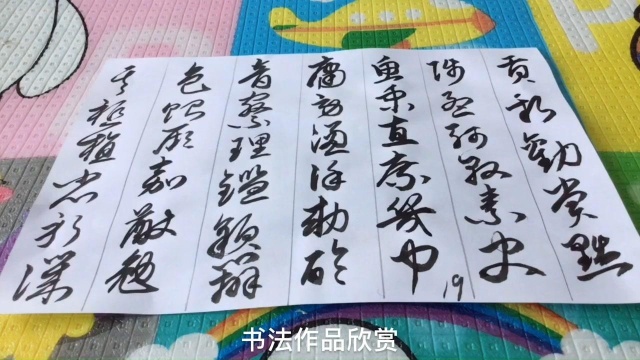 貢新勸賞黜
陟孟軻敦素史
19
魚秉直庶幾中
庸勞謙謹敕聆
音察理鑑貌辨
色貽厥嘉猷勉
其祗植省躬譏
书法作品欣赏